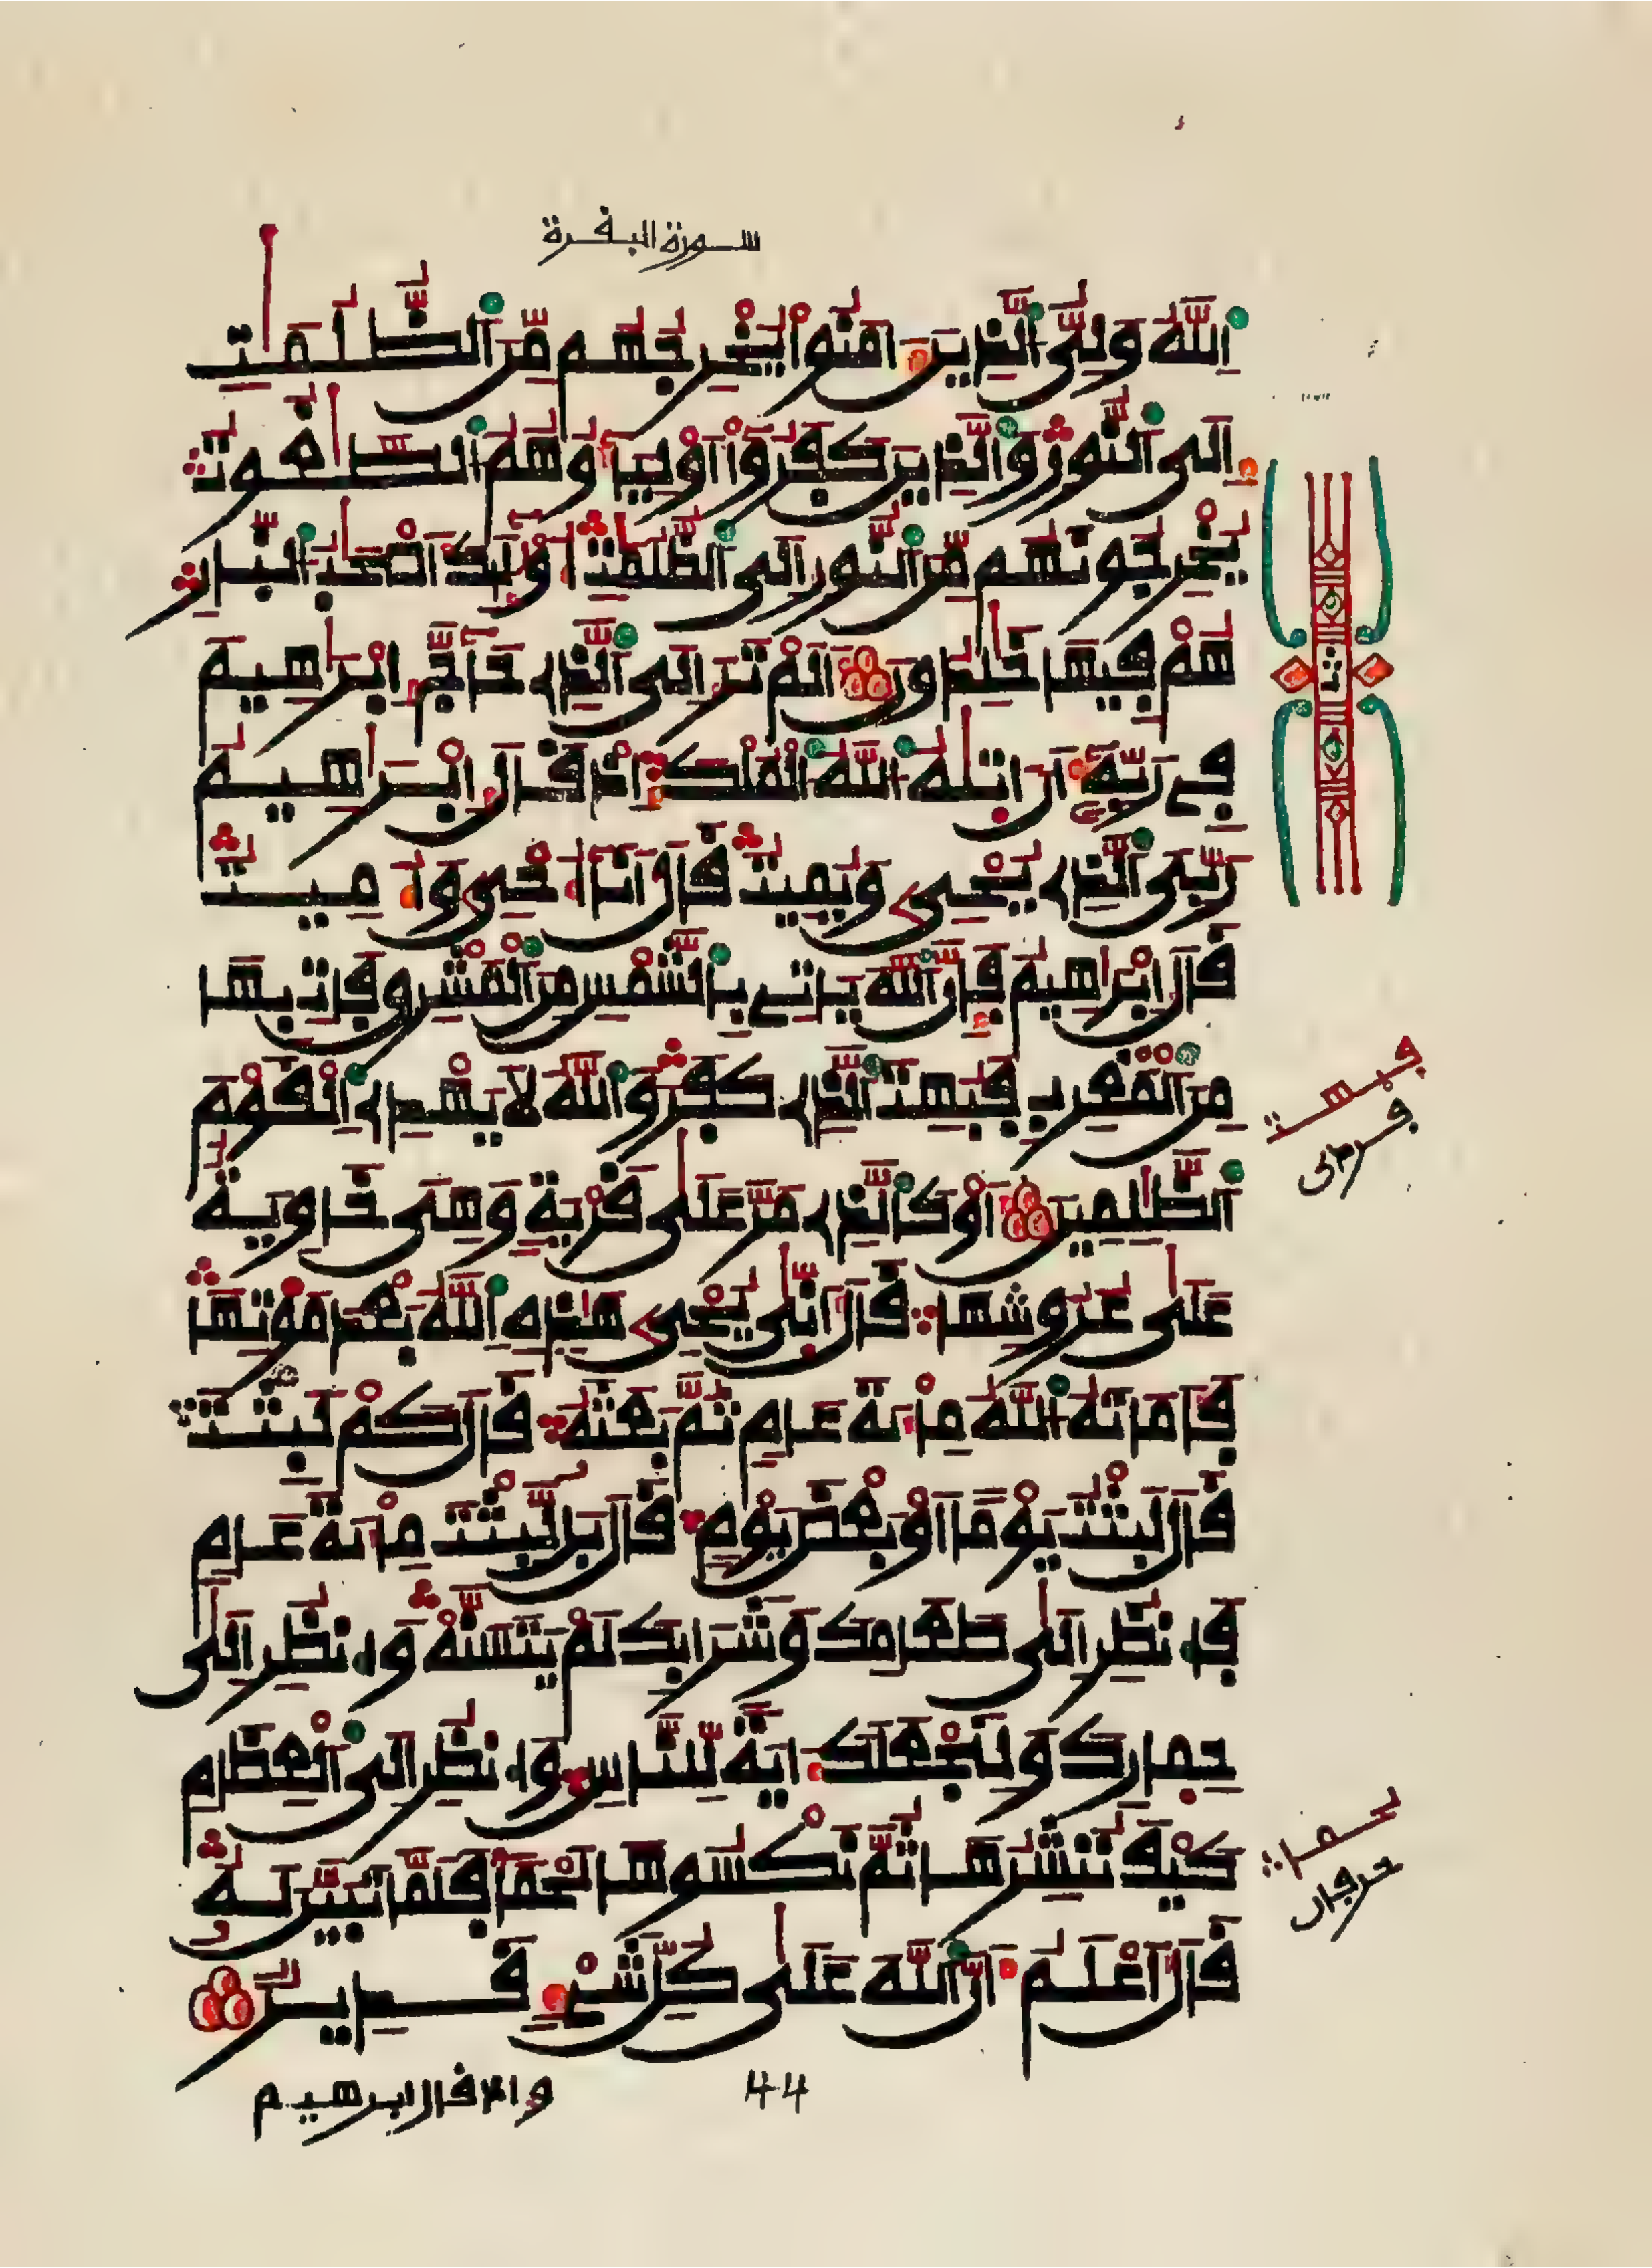 سورة البقرة
اَ۬للَّهُ وَلِيُّ اُ۬لذِينَ ءَامَنُواْ يُخْرِجُهُم مِّنَ اَ۬لظُّلُمَٰتِ
إِلَى اَ۬لنُّورِ وَالذِينَ كَفَرُواْ أَوْلِيَآؤُهُمُ اُ۬لطَّٰغُوتُ
يُخْرِجُونَهُم مِّنَ اَ۬لنُّورِ إِلَى اَ۬لظُّلُمَٰتِ أُوْلَٰٓئِكَ أَصْحَٰبُ اُ۬لنّ۪ارِ
هُمْ فِيهَا خَٰلِدُونَ أَلَمْ تَرَ إِلَى اَ۬لذِے حَآجَّ إِبْرَٰهِيمَ
فِے رَبِّهِۦٓ أَنْ ءَات۪يٰهُ اُ۬للَّهُ اُ۬لْمُلْكَ إِذْ قَالَ إِبْرَٰهِيمُ
رَبِّيَ اَ۬لذِے يُحْيِۦ وَيُمِيتُ قَالَ أَنَآ أُحْيِۦ وَأُمِيتُ
قَالَ إِبْرَٰهِيمُ فَإِنَّ اَ۬للَّهَ يَاتِے بِالشَّمْسِ مِنَ اَ۬لْمَشْرِقِ فَاتِ بِهَا
مِنَ اَ۬لْمَغْرِبِ فَبُهِتَ اَ۬لذِے كَفَرَ وَاللَّهُ لَا يَهْدِے اِ۬لْقَوْمَ
فبهت
فرضى
اَ۬لظَّٰلِمِينَ أَوْ كَالذِے مَرَّ عَلَىٰ قَرْيَةٍ وَهْىَ خَاوِيَةٌ
عَلَىٰ عُرُوشِهَا قَالَ أَنّ۪ىٰ يُحْيِۦ هَٰذِهِ اِ۬للَّهُ بَعْدَ مَوْتِهَا
فَأَمَاتَهُ اُ۬للَّهُ مِاْئَةَ عَامٍ ثُمَّ بَعَثَهُۥ قَالَ كَمْ لَبِثْتَ
قَالَ لَبِثْتُ يَوْمًا أَوْ بَعْضَ يَوْمٍ قَالَ بَل لَّبِثْتَ مِاْئَةَ عَامٍ
فَانظُرِ اِلَىٰ طَعَامِكَ وَشَرَابِكَ لَمْ يَتَسَنَّهْ وَانظُرِ اِلَىٰ
حِم۪ارِكَ وَلِنَجْعَلَكَ ءَايَةً لِّلنَّاسِ وَانظُرِ اِلَى اَ۬لْعِظَامِ
كَيْفَ نُنشِرُهَا ثُمَّ نَكْسُوهَا لَحْمًا فَلَمَّا تَبَيَّنَ لَهُۥ
قَالَ أَعْلَمُ أَنَّ اَ۬للَّهَ عَلَىٰ كُلِّ شَےْءٍ قَدِيرٌ
وإذ قال إبرهيم
44